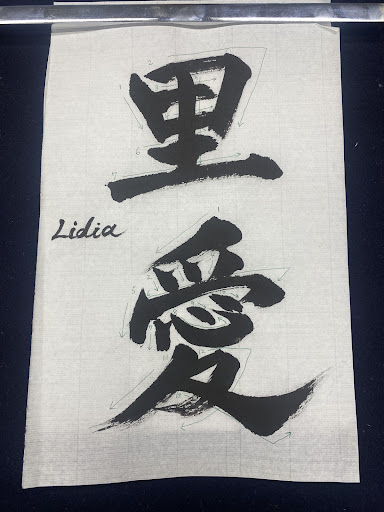 里
愛
Lidia